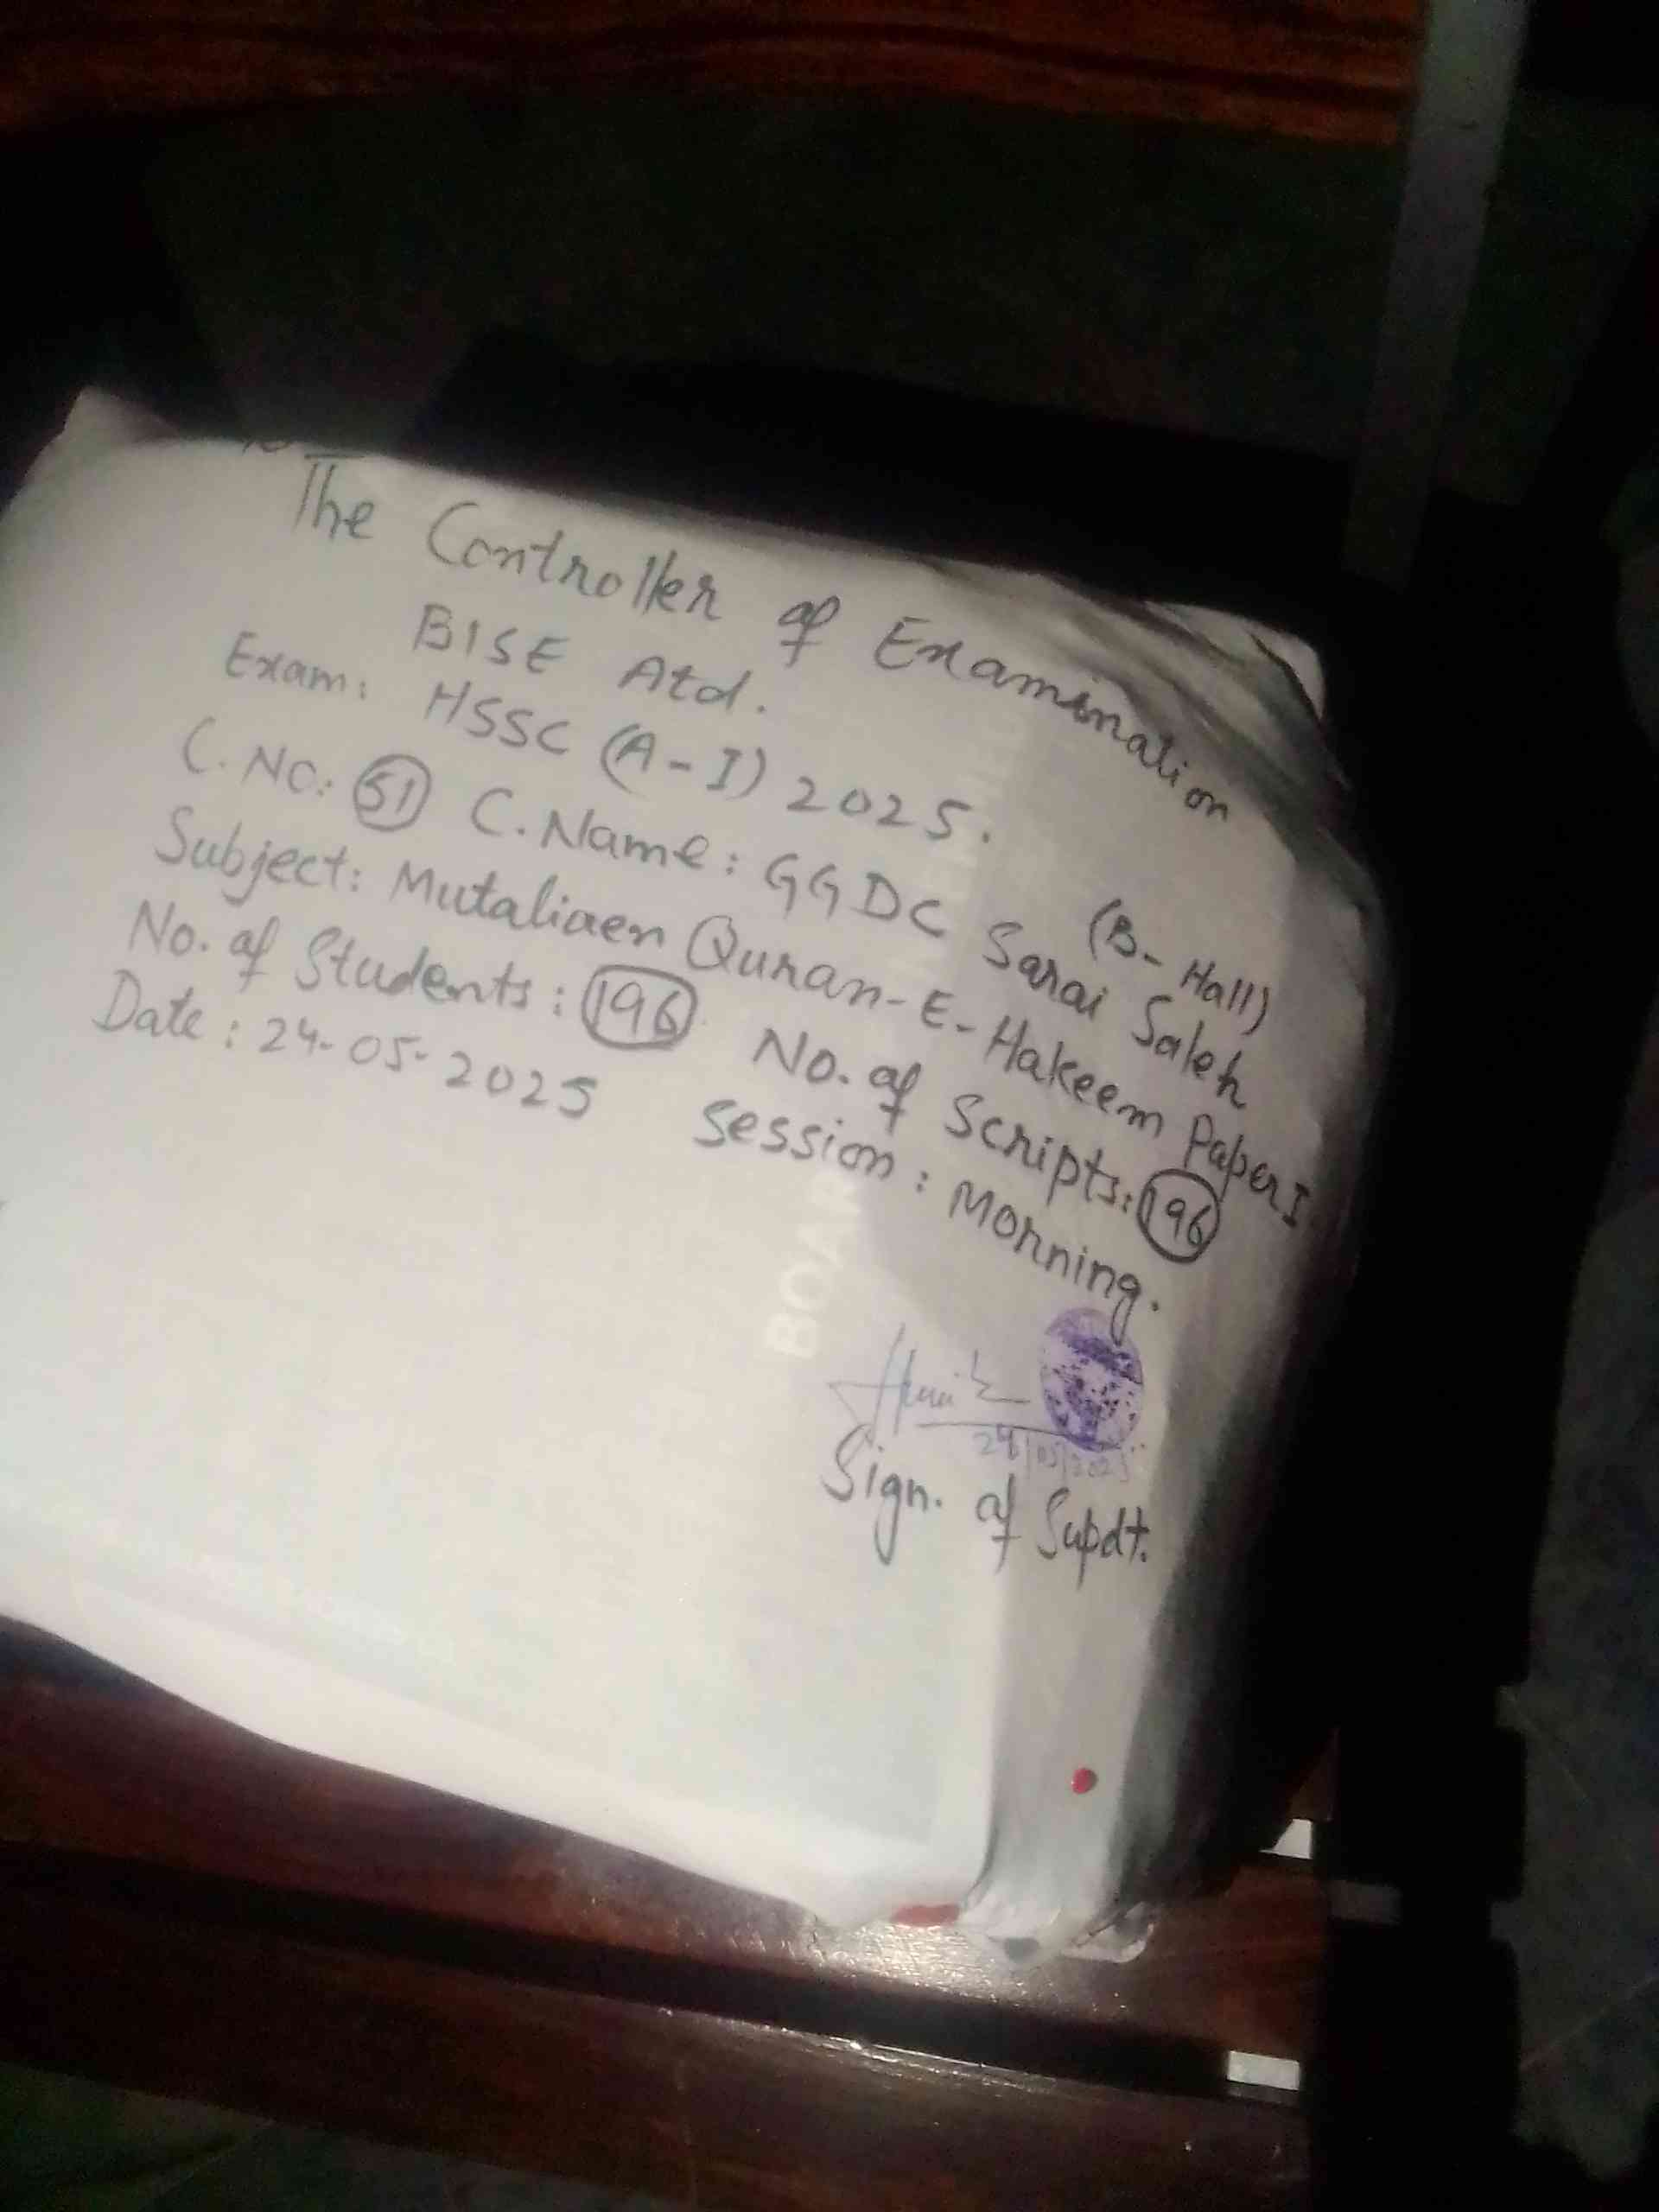 To
The Controller of Examination
BISE Atd.
Exam: HSSC (A-I) 2025.
(B-Hall)
C.NO: 51 C.Name: GGDC Sarai Saleh
Subject: Mutaliaen Quran-E-Hakeem Paper I
No. of Students: 196 No. of Scripts: 196
Date: 24-05-2025 Session: Morning.
BOAR
24/05/2025
Sign. of Supdt.